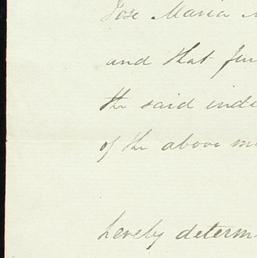 Jose Maria
and that
the said inde
of the above m
hereby determ